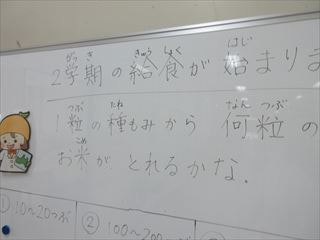 2学期の給食が 始まりま
1粒の種もみから 何粒の
お米が とれるかな.
① 10～20つぶ ② 100～200つぶ